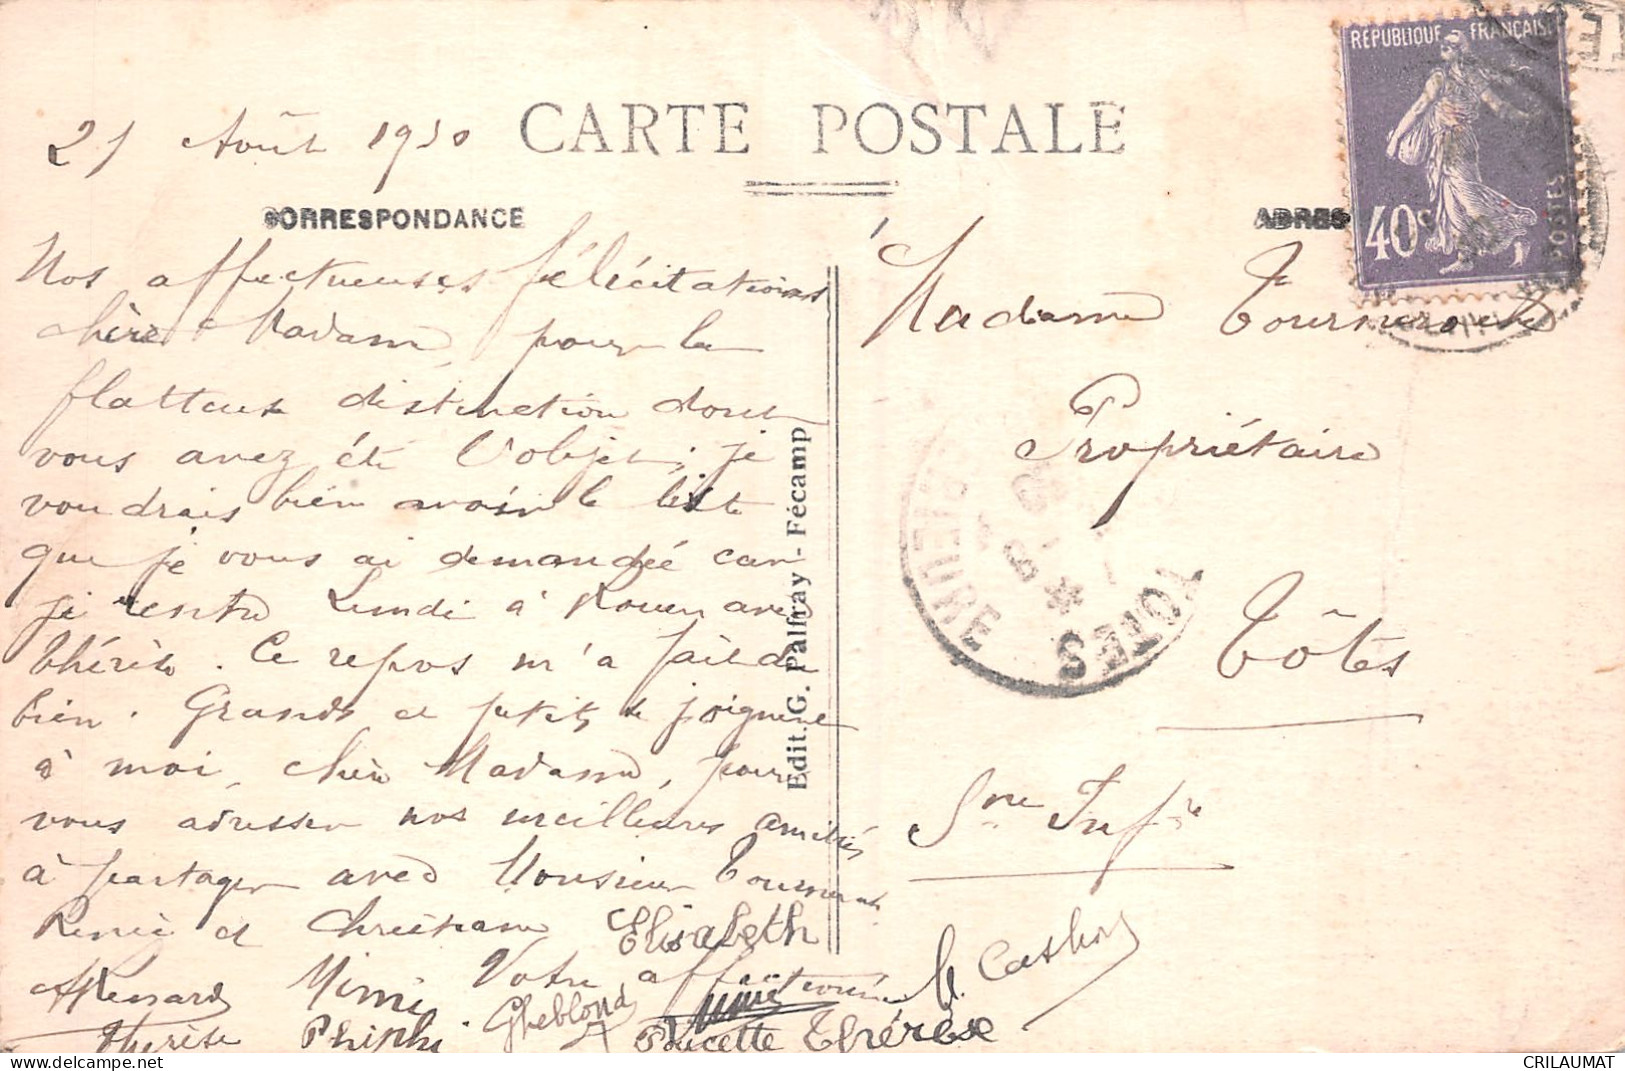 CARTE POSTALE
21 Août 1930
CORRESPONDANCE
Nos affectueuses félicitations
chère Madame, pour la
flatteuse distinction dont
vous avez été l'objet ; je
voudrais bien avoir la liste
que je vous ai demandée car
je rentre Lundi à Rouen avec
Thérèse. Ce repos m'a fait du
bien. Grands et petits se joignent
à moi, chère Madame, pour
vous adresser nos meilleures amitiés
à partager avec Monsieur
Renée et Christiane
Votre affectionnée
Elisabeth
Mimi
Thérèse Phiphi
Poucette Thérèse
Edit. G. Palfray - Fécamp
ADRES
Madame
Propriétaire
Tôtes
Sne Infre
REPUBLIQUE FRANÇAISE
40c
POSTES
TOTES
CRILAUMAT